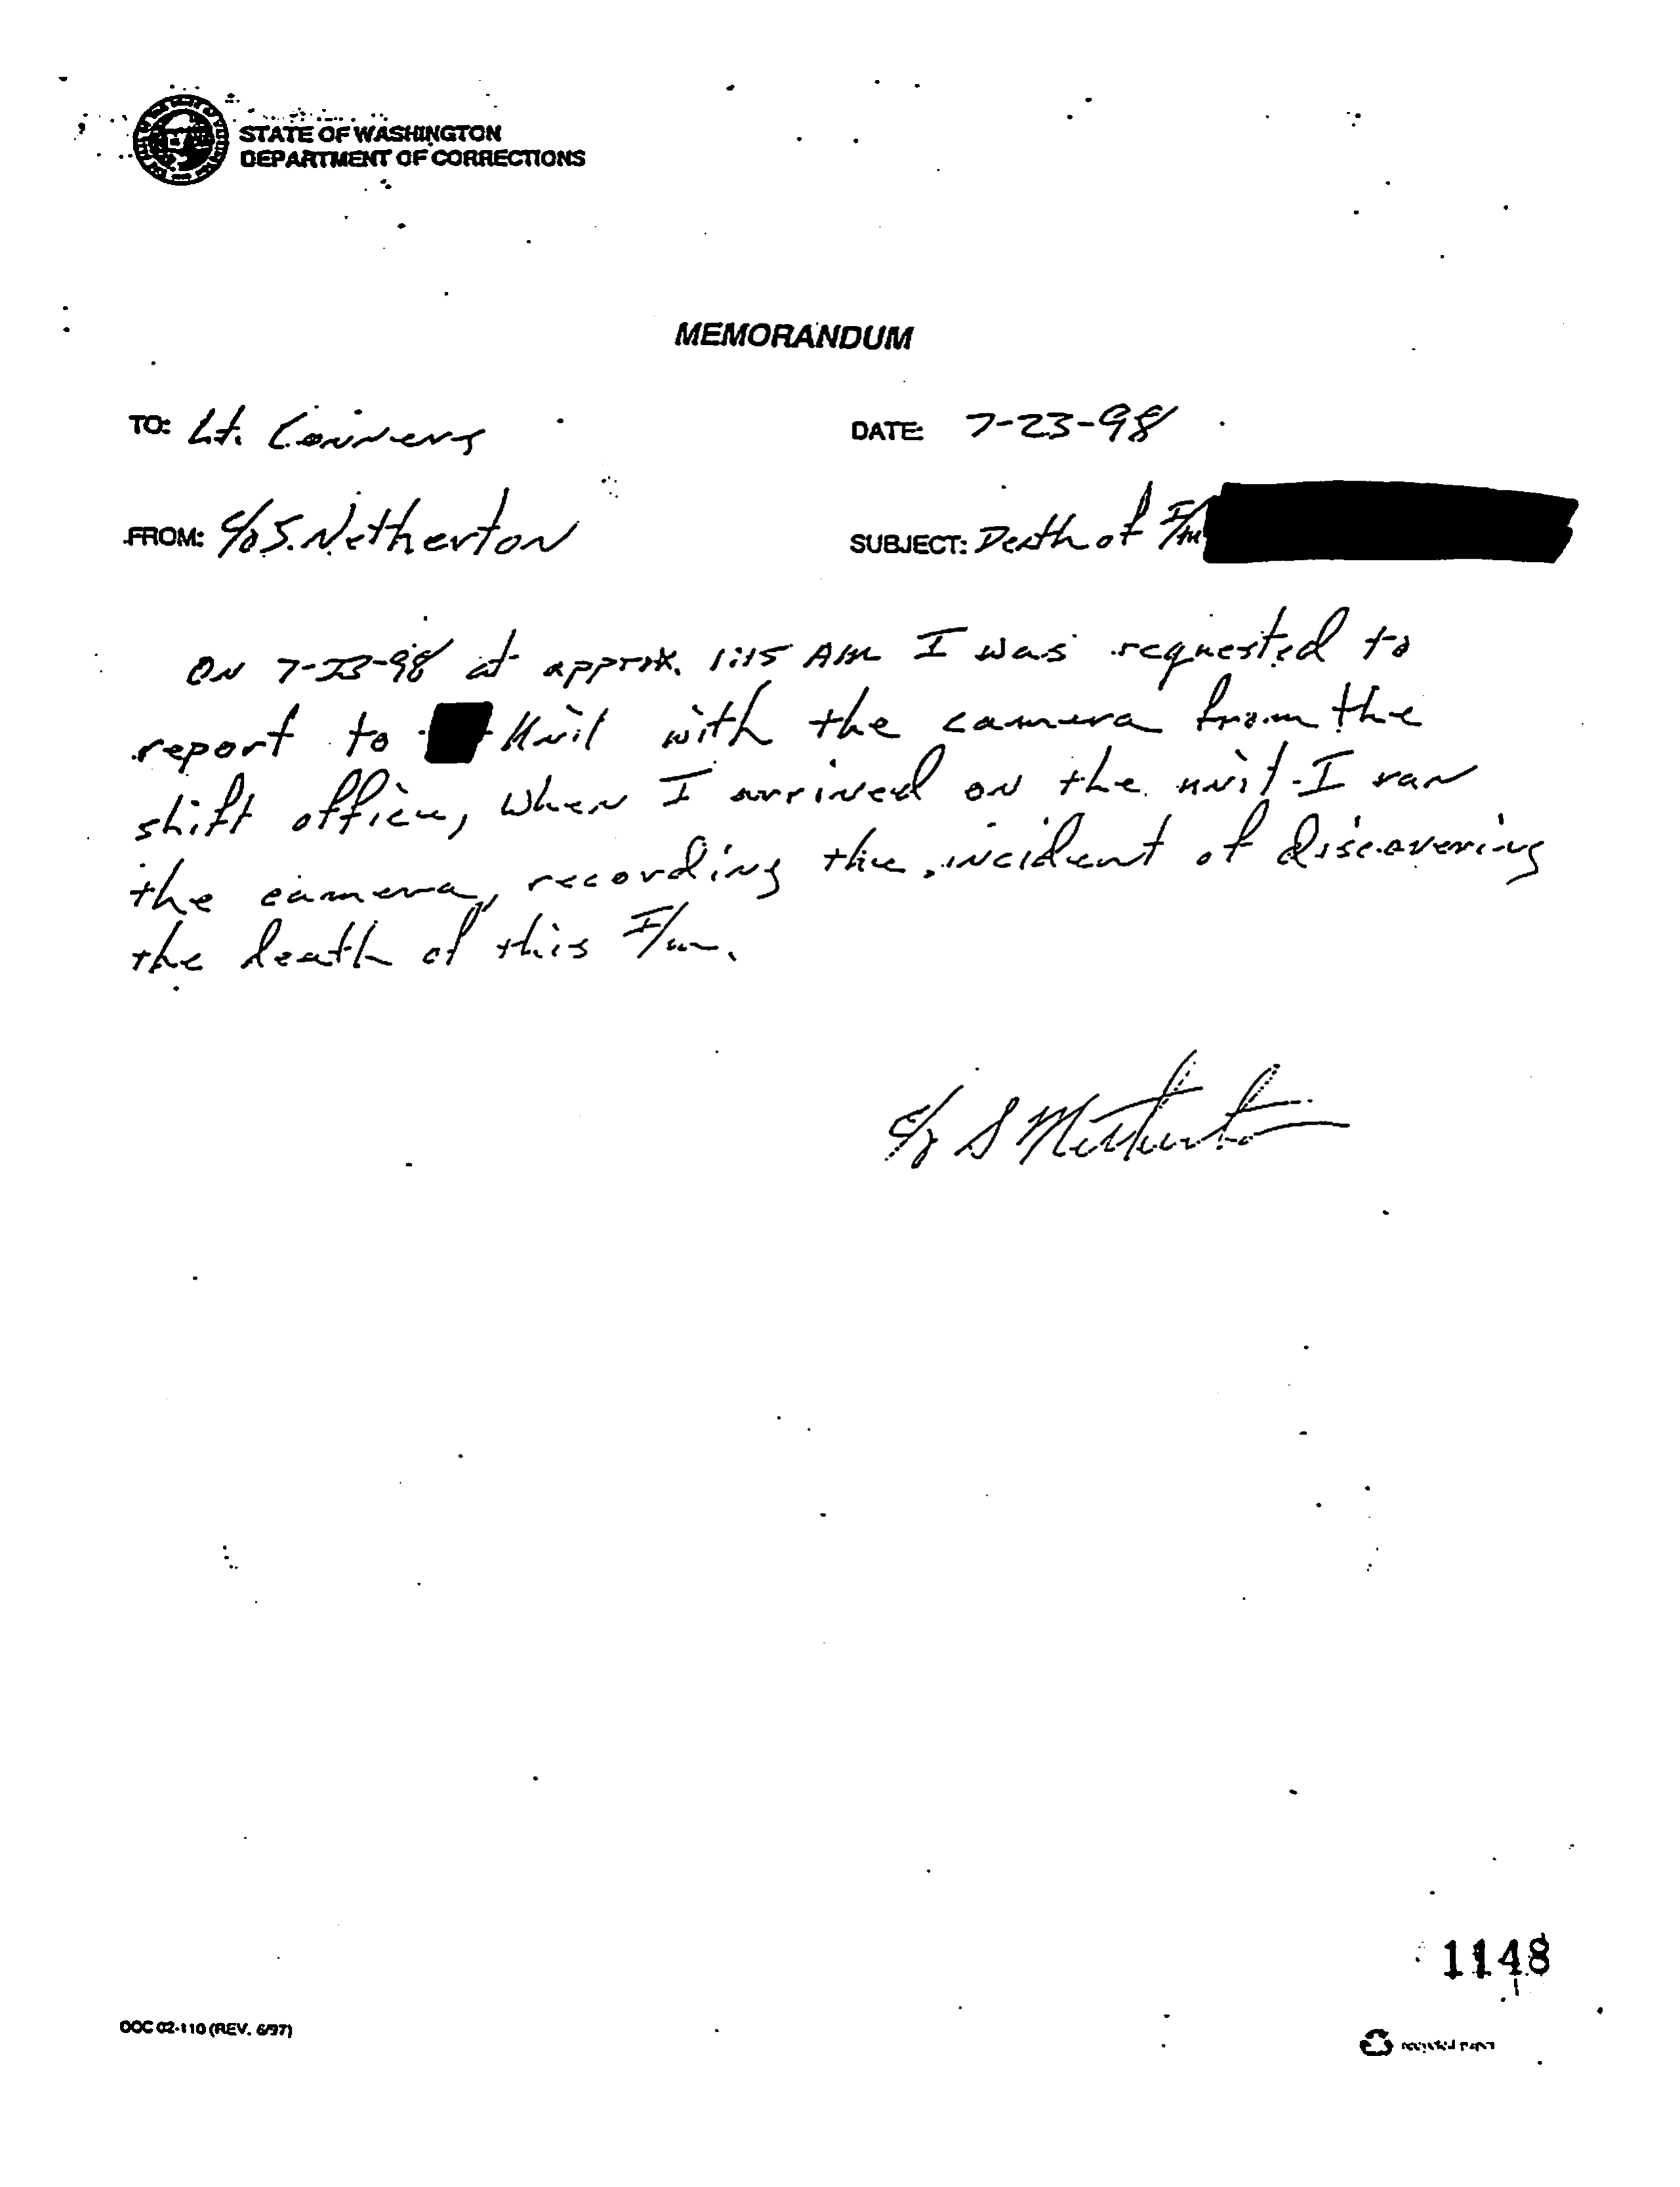 STATE OF WASHINGTON
DEPARTMENT OF CORRECTIONS
MEMORANDUM
TO: Lt. Conners
DATE: 7-23-98
FROM: C/O S. Netherton
SUBJECT: Death of I/m
On 7-23-98 at approx. 1:15 AM I was requested to
report to Unit with the camera from the
shift office, when I arrived on the unit I ran
the camera, recording the incident of discovering
the death of this I/m.
C/O S Netherton
1148
DOC 02-110 (REV. 6/97)
recycled paper